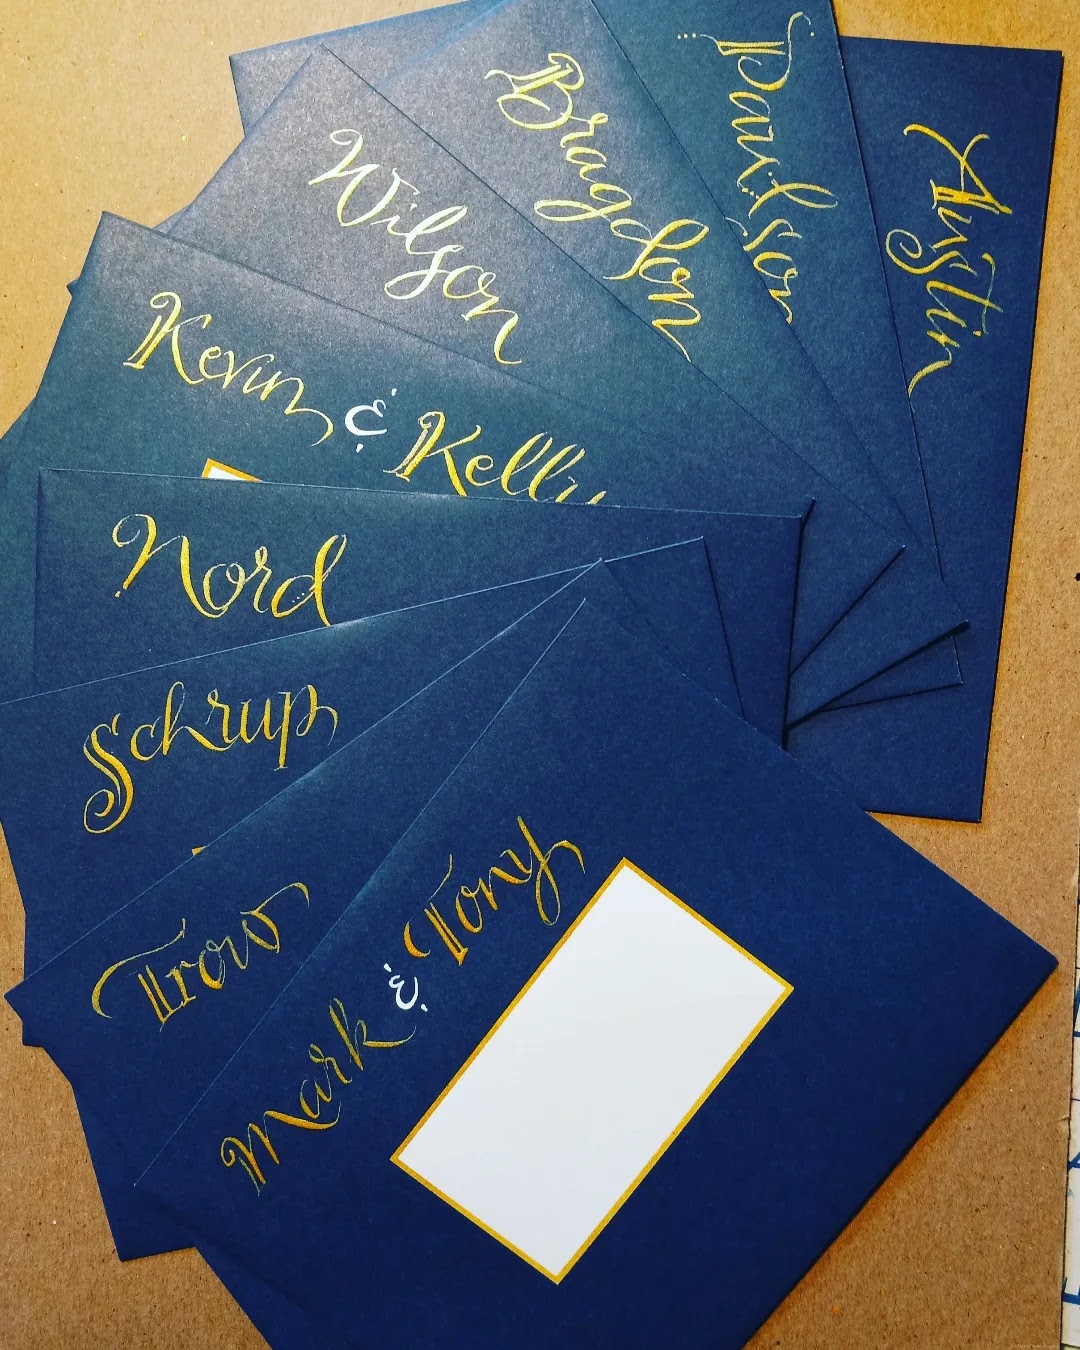 Austin
Paulsson
Bragdon
Wilson
Kevin & Kelly
Nord
Schrup
Trow
Mark & Tony